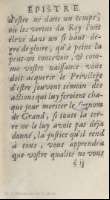 EPISTRE
d'estre né dans un temps,
où les vertus du Roy sont
élevé dans un si haut de-
gré de gloire, qu'à peine la
peut-on concevoir, & com-
me vostre naissance vous
doit acquerir le Privilege
d'estre souvent témoin des
actions qui luy feront cha-
que jour meriter le Surnom
de Grand; si toute la ter-
re ne le luy avoit pas déja
donné, la justice qu'il rend
à tous, vous apprendra
que vostre qualité ne vous
ã ij